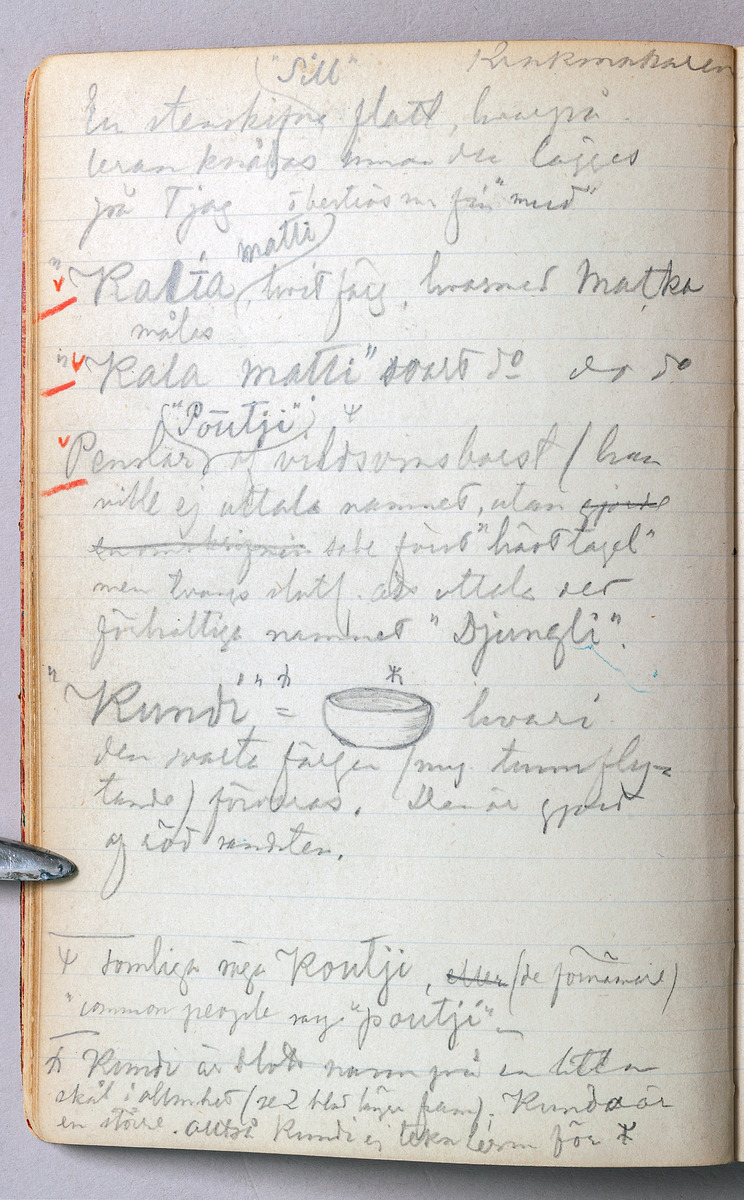 Krukmakaren
"Sill"
En stenskifva flatt, hvarpå
leran knådas innan den lägges
på Tjag öfverströs m. fin "mud"
matti
"Kalia, hvit färg, hvarmed Matka
målas
"Kala matti" svart do do do
"Poutji" Ψ
Penslar, af vildsvinsborst (han
ville ej uttala namnet, utan gjorde
en omskrifning sade först "hårt tagel"
men tvangs slutl. att uttala det
förhatliga namnet "Djungli".
"Kundi" = hvari
den svarta färgen (my. tunnfly-
tande) förvaras. Den är gjord
af röd sandsten.
Ψ Somliga säga Koutji, eller (de förnämare)
"common people say "poutji"
Kundi är blott namn på en liten
skål i allmhet (se 2 blad längre fram). Kunda är
en större. alltså Kundi ej tekn term för